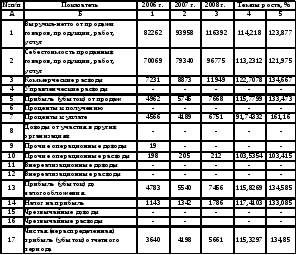 №п/п Показатель 2006 г. 2007 г. 2008 г. Темпы роста, %
А Б 1 2 3 4 5
1 Выручка-нетто от продажи товаров, продукции, работ, услуг 82262 93958 116392 114,218 123,877
2 Себестоимость проданных товаров, продукции, работ, услуг 70069 79340 96775 113,2312 121,975
3 Коммерческие расходы 7231 8873 11949 122,7078 134,667
4 Управленческие расходы - - - - -
5 Прибыль (убыток) от продаж 4962 5745 7668 115,7799 133,473
6 Проценты к получению - - - - -
7 Проценты к уплате 4566 4189 6751 91,74332 161,16
8 Доходы от участия в других организациях - - - - -
9 Прочие операционные доходы 19 - - - -
10 Прочие операционные расходы 198 205 212 103,5354 103,415
11 Внереализационные доходы - - - - -
12 Внереализационные расходы - - - - -
13 Прибыль (убыток) до налогообложения 4783 5540 7456 115,8269 134,585
14 Налог на прибыль 1143 1342 1786 117,4103 133,085
15 Чрезвычайные доходы - - - - -
16 Чрезвычайные расходы - - - - -
17 Чистая (нераспределенная) прибыль (убыток) отчетного периода 3640 4198 5661 115,3297 134,85